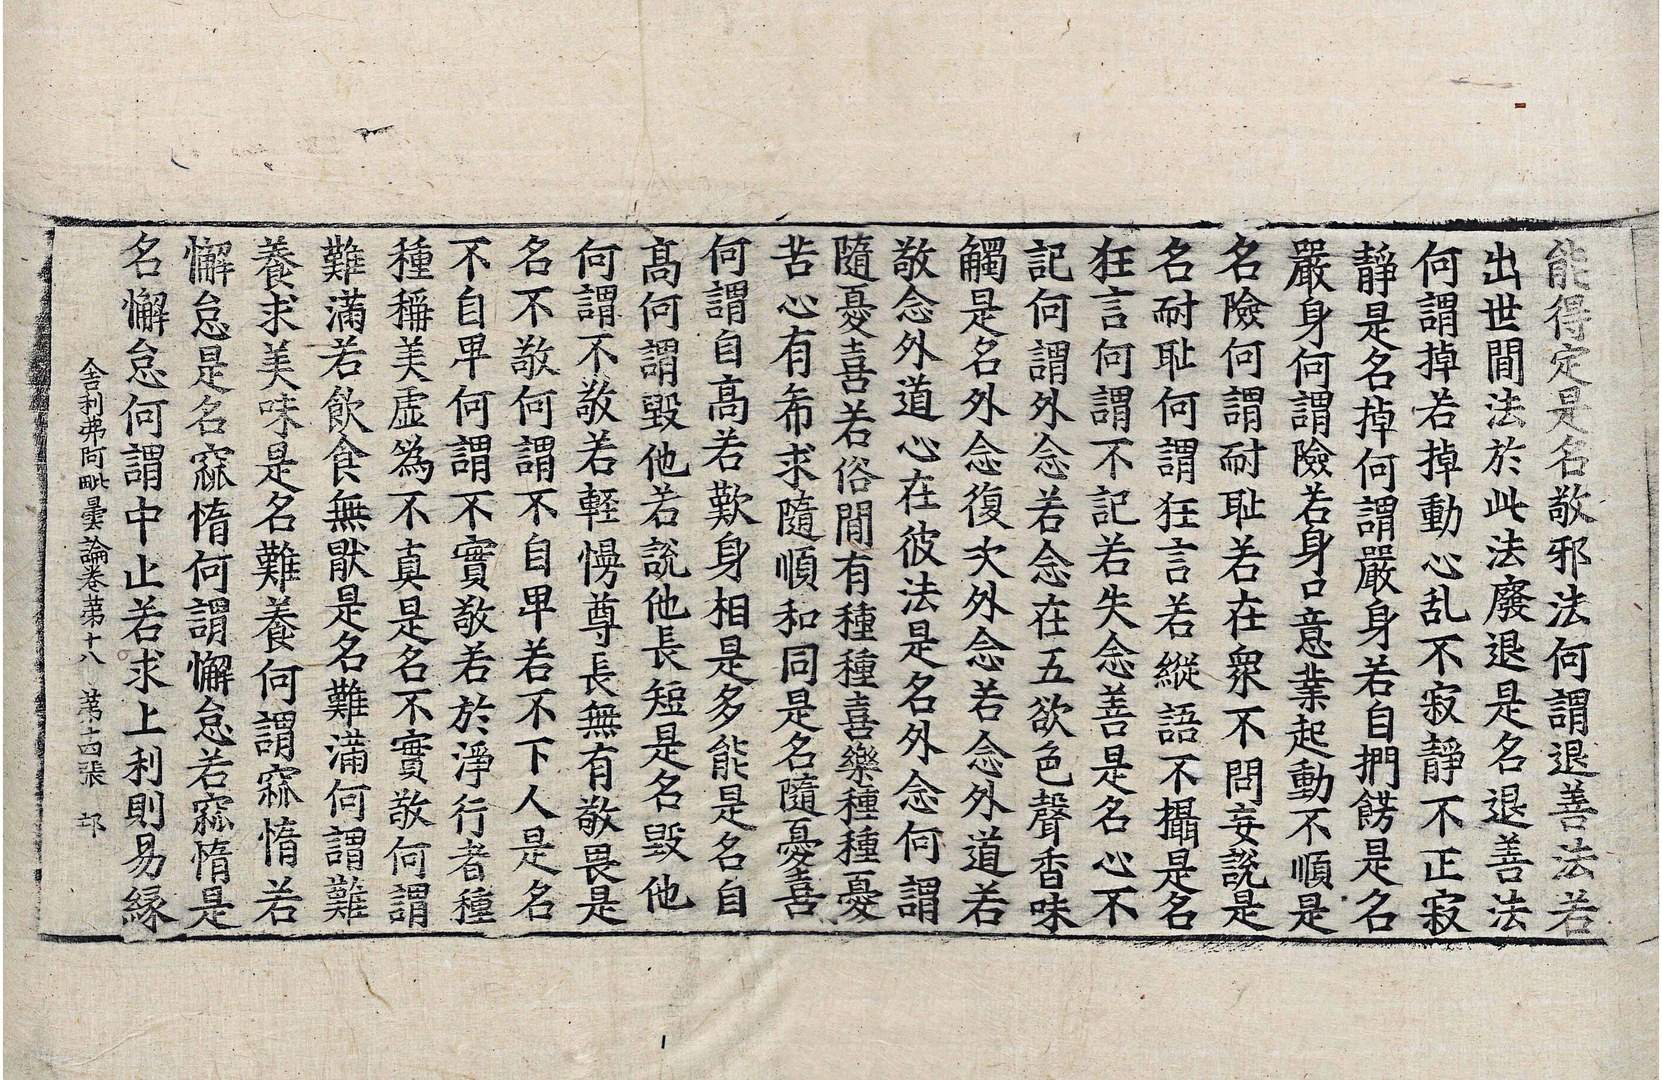 能得定是名敬邪法何謂退善法若
出世間法於此法廢退是名退善法
何謂掉若掉動心乱不寂靜不正寂
靜是名掉何謂嚴身若自捫餝是名
嚴身何謂險若身口意業起動不順是
名險何謂耐耻若在衆不問妄說是
名耐耻何謂狂言若縱語不攝是名
狂言何謂不記若失念善是名心不
記何謂外念若念在五欲色聲香味
觸是名外念復次外念若念外道若
敬念外道心在彼法是名外念何謂
隨憂喜若俗間有種種喜樂種種憂
苦心有希求隨順和同是名隨憂喜
何謂自高若歎身相是多能是名自
髙何謂毀他若說他長短是名毀他
何謂不敬若輕慢尊長無有敬畏是
名不敬何謂不自卑若不下人是名
不自卑何謂不實敬若於淨行者種
種稱美虛爲不真是名不實敬何謂
難滿若飲食無猒是名難滿何謂難
養求美味是名難養何謂窳惰若
懈怠是名窳惰何謂懈怠若窳惰是
名懈怠何謂中止若求上利則易緣
舍利弗阿毗曇論卷苐十八 苐十四張